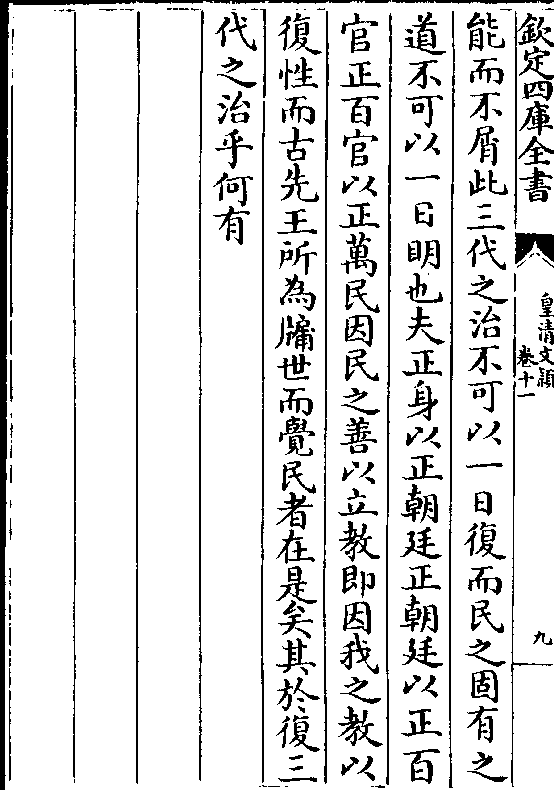 欽定四庫全書
皇清文穎
卷十一
九
能而不屑此三代之治不可以一日復而民之固有之
道不可以一日明也夫正身以正朝廷正朝廷以正百
官正百官以正萬民因民之善以立教即因我之教以
復性而古先王所為牖世而覺民者在是矣其於復三
代之治乎何有